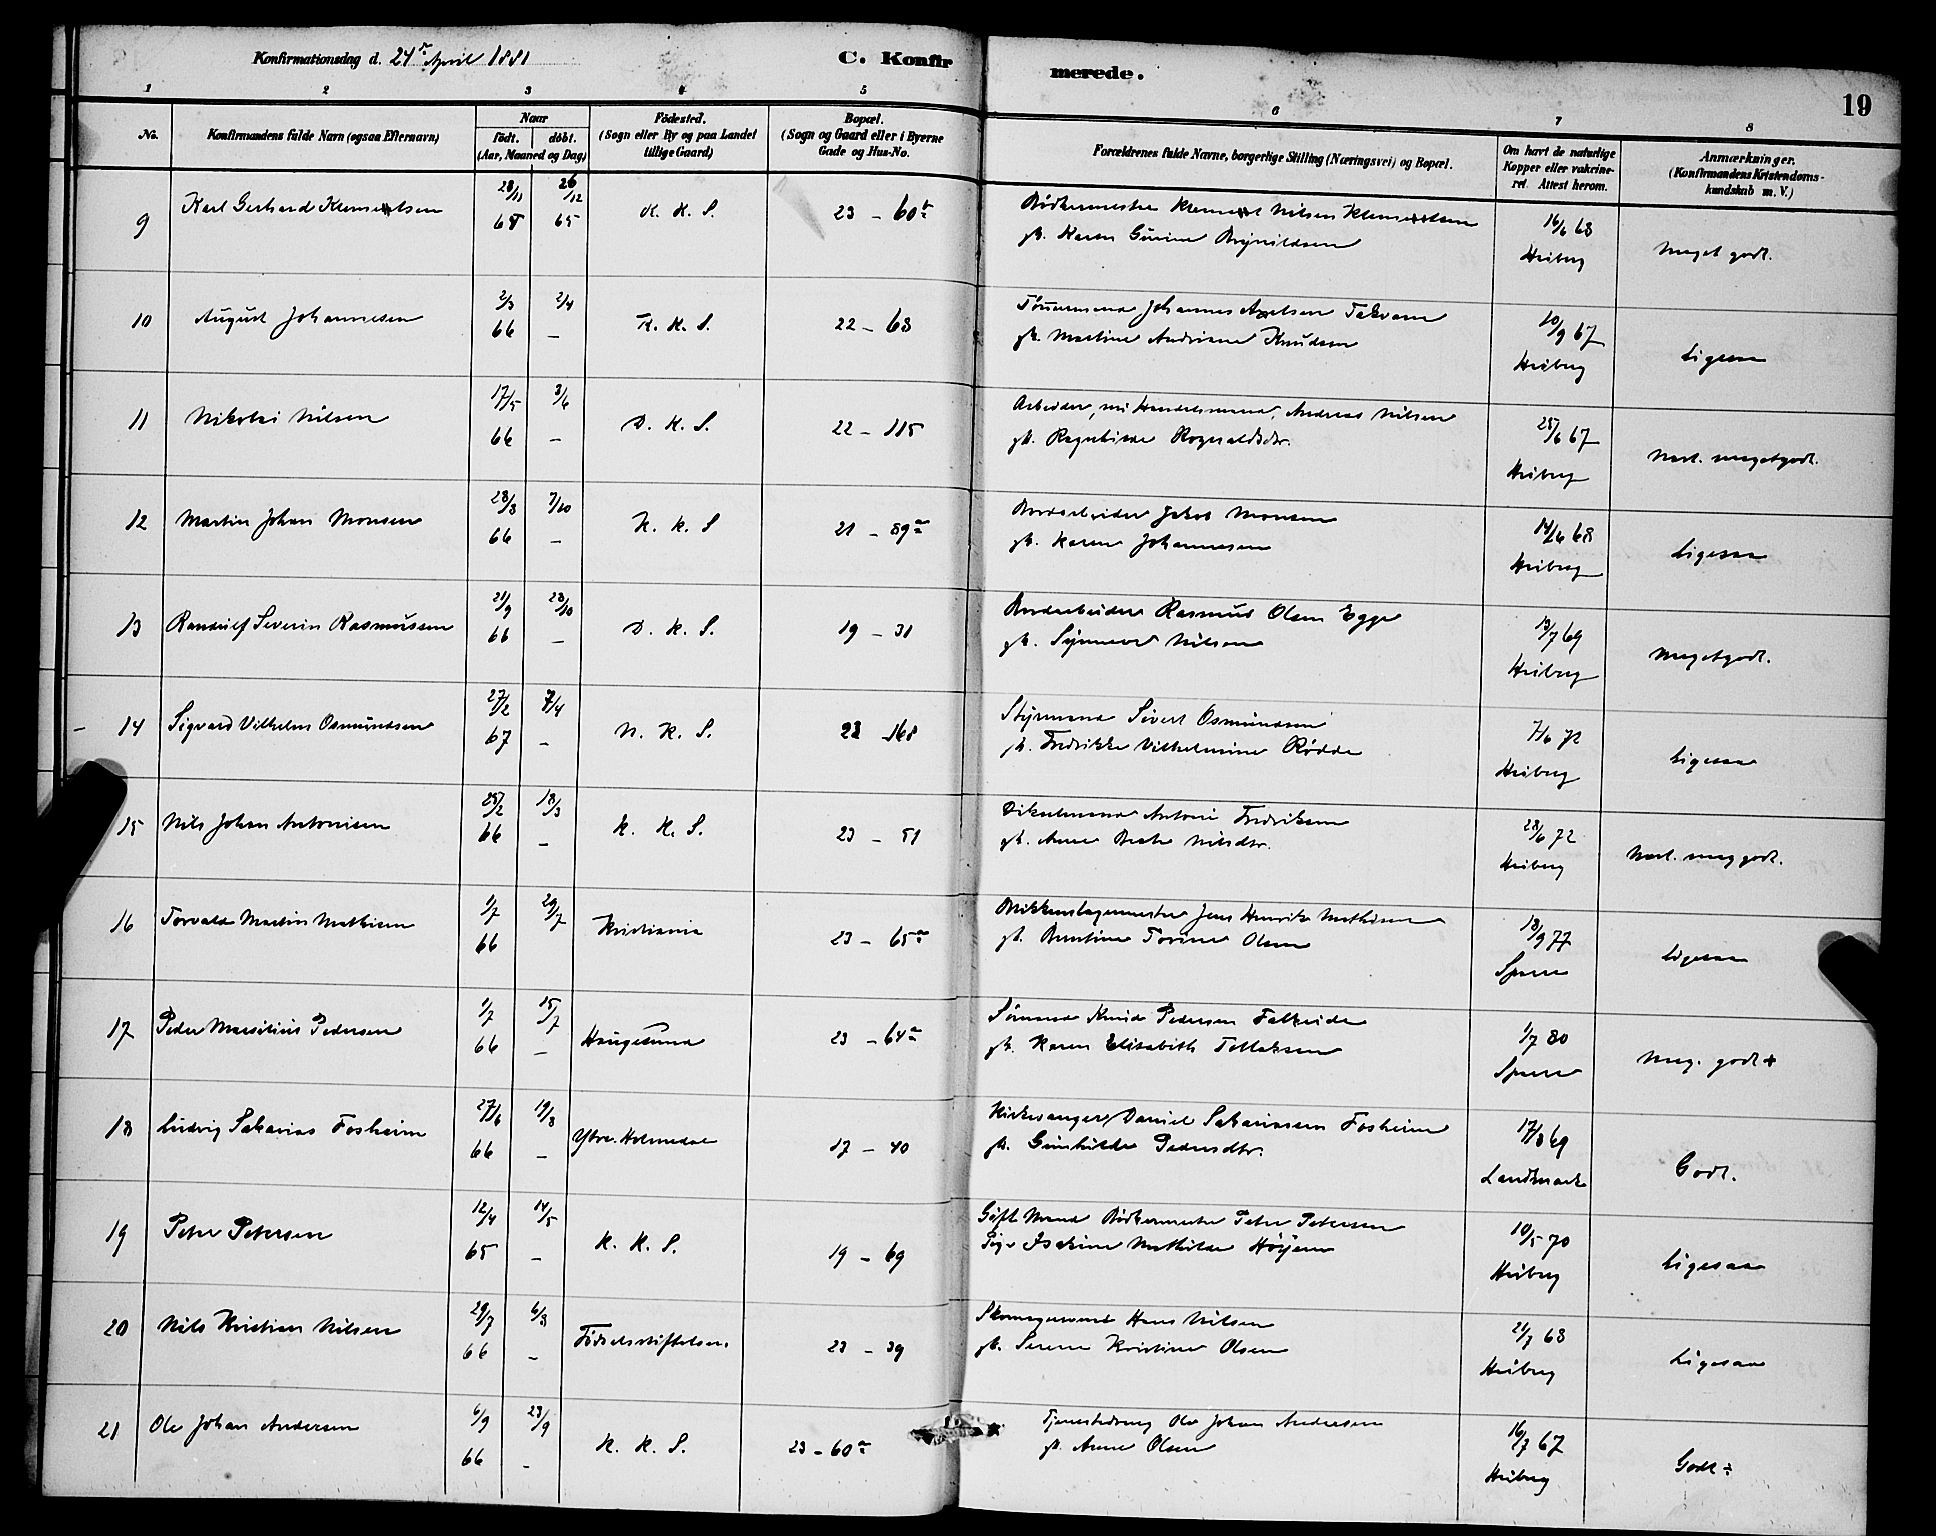 Konfirmationsdag d. 24de April 1881
C. Konfirmerede.
19
1 2 3 4 5 6 7 8
No.
Konfirmandens fulde Navn (ogsaa Efternavn)
Naar
født. døbt.
(Aar, Maaned og Dag)
Fødested.
(Sogn eller By og paa Landet
tillige Gaard)
Bopæl.
(Sogn og Gaard eller i Byerne
Gade og Hus-No.
Forældrenes fulde Navne, borgerlige Stilling (Næringsvei) og Bopæl.
Om havt de naturlige
Kopper eller vakcine-
ret. Attest herom.
Anmærkninger.
(Konfirmandens Kristendoms-
kundskab m. V.)
9 Karl Gerhard Klementsen 28/11 65 26/12 65 K. K. S. 23 - 60a
Bødkermester Klement Nilsen Klementsen
gk. Karen Gurine Brynildsen
16/6 68 Heiberg
Meget godt.
10 August Johannesen 2/3 66 2/4 - K. K. S. 22 - 68
Tømmermand Johannes Axelsen Takvam
gk. Martine Andriane Knudsen
10/9 67 Heiberg
Ligesaa
11 Nikolai Nilsen 17/5 66 3/6 - D. K. S. 22 - 115
Arbeider, nu Handelsmand, Andreas Nilsen
gk. Ragnhilde Rognaldsdtr.
25/6 67 Heiberg
Næst. megetgodt.
12 Martin Johan Monsen 28/8 66 7/10 - K. K. S 21 - 89a
Bordarbeider Jakob Monsen
gk. Karen Johannesen
14/6 68 Heiberg
Ligesaa
13 Randulf Severin Rasmussen 21/9 66 28/10 - D. K. S. 19 - 31
Bordarbeider Rasmus Olsen Egge
gk. Synneve Nilsen
13/7 69 Heiberg
Megetgodt.
14 Sigvard Vilhelm Osmundsen 27/2 67 7/4 - N. K. S. 22 - 168
Styrmand Sivert Osmundsen
gk. Fredrikke Vilhelmine Rødde
7/6 72 Heiberg
Ligesaa
15 Nils Johan Antonisen 25/2 66 18/3 - K. K. S. 23 - 51
Antoni Fredriksen
gk. Anne Beate Nilsdtr.
28/6 72 Heiberg
Næst. meg godt.
16 Torvald Martin Mathisen 1/7 66 29/7 Kristiania 23 - 65a
Blikkenslagermester Jens Henrik Mathisen
gk. Berntine Torine Olsen
18/9 77 Sparre
Ligesaa
17 Peder Marsilius Pedersen 1/7 66 15/7 - Haugesund 23 - 64a
Sømand Knud Pedersen Falkeide
gk. Karen Elisabeth Tollaksen
1/7 80 Sparre
Meg. godt +
18 Ludvig Sakarias Fosheim 27/6 66 19/8 - Ytre Holmedal 17 - 40
Kirkesanger Daniel Sakariassen Fosheim
gk. Gunhilde Pedersdtr.
17/8 69 Landmark
Godt.
19 Peter Petersen 12/4 65 14/5 - K. K. S. 19 - 69
Gift Mand Bødkermester Peter Petersen
Pige Isakine Mathilde Høyem
10/5 70 Heiberg
Ligesaa
20 Nils Kristian Nilsen 29/7 66 6/8 - Fødselsstiftelsen. 23 - 39
Skomagersvend Hans Nilsen
gk. Serene Kristine Olsen
21/7 68 Heiberg
Ligesaa
21 Ole Johan Andersen 6/9 66 23/9 - K. K. S. 23 - 60a
Tjenestedreng Ole Johan Andersen
gk. Anne Olsen
16/7 67 Heiberg
Godt ÷